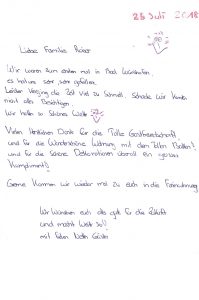 25 Juli 2018
Liebe Familie
Wir waren zum ersten mal in Bad Wörishofen,
es hat uns sehr sehr gefallen,
Leider Verging die Zeit viel zu Schnell, schade wir konnten
nicht alles Besichtigen
Wir hatten so Schönes Wetter
Vielen Herzlichen Dank für die Tolle Gastfreundschaft
und für die Wunderschöne Wohnung mit dem Tollen Balkon!
und für die Schöne Dekorationen überall ein grosses
Kompliment!
Gerne Kommen wir wieder mal zu euch in die Ferienwohnung
Wir Wünschen euch alles gute für die Zukunft
und macht Weiter So!!
mit Feien Netten Gästen